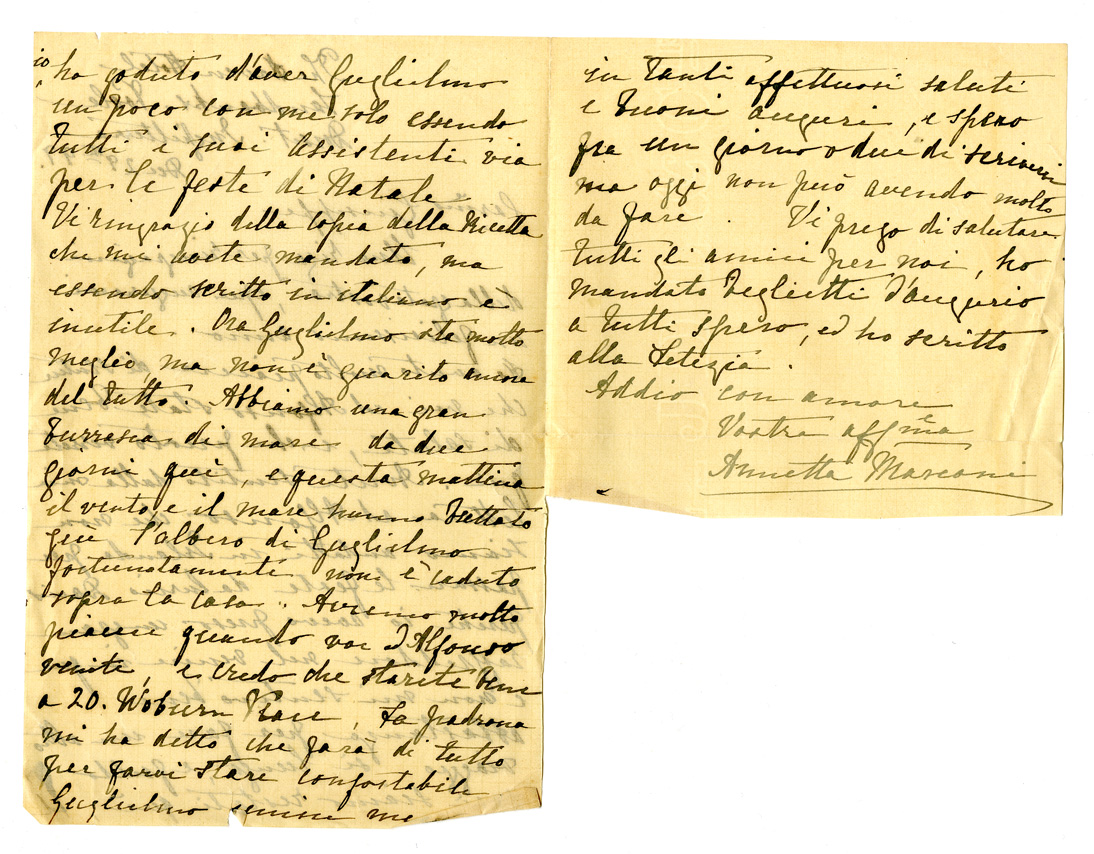 io
ho goduto d'aver Guglielmo
un poco con me solo essendo
tutti i suoi assistenti via
per le feste di Natale
Vi ringrazio della copia della Ricetta
che mi avete mandato, ma
essendo scritto in italiano è
inutile. Ora Guglielmo sta molto
meglio ma non è guarito ancora
del tutto. Abbiamo una gran
burrasca di mare da due
giorni quì, e questa mattina
il vento e il mare hanno buttato
giù l'albero di Guglielmo
fortunatamente non è caduto
sopra la casa. Avremo molto
piacere quando voi d'Alfonso
venite, e credo che starete bene
a 20. Woburn Place, La padrona
mi ha detto che farà di tutto
per farvi stare confortabile
Guglielmo me
in tanti affettuosi saluti
e buoni auguri, e spero
fra un giorno o due di scrivervi
ma oggi non può avendo molto
da fare. Vi prego di salutare
tutti gli amici per noi, ho
mandato beglietti d'augurio
a tutti spero, ed ho scritto
alla Letizia.
Addio con amore
Vostra affma
Annetta Marconi